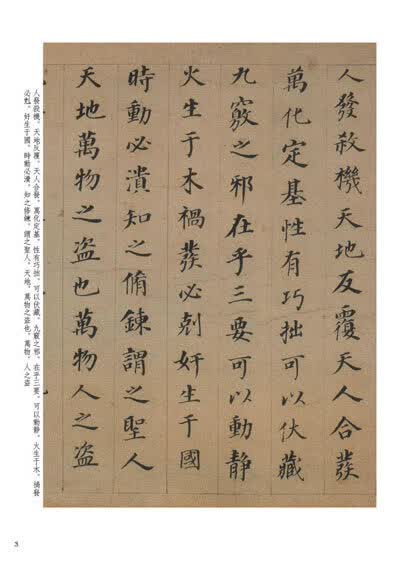 人發殺機天地反覆天人合發
萬化定基性有巧拙可以伏藏
九竅之邪在乎三要可以動靜
火生于木禍發必剋奸生于國
時動必潰知之脩鍊謂之聖人
天地萬物之盜也萬物人之盜
人發殺機，天地反覆。天人合發，萬化定基。性有巧拙，可以伏藏。九竅之邪，在乎三要，可以動靜。火生于木，禍發
必剋。奸生于國，時動必潰。知之修煉，謂之聖人。天地，萬物之盜也。萬物，人之盜
3